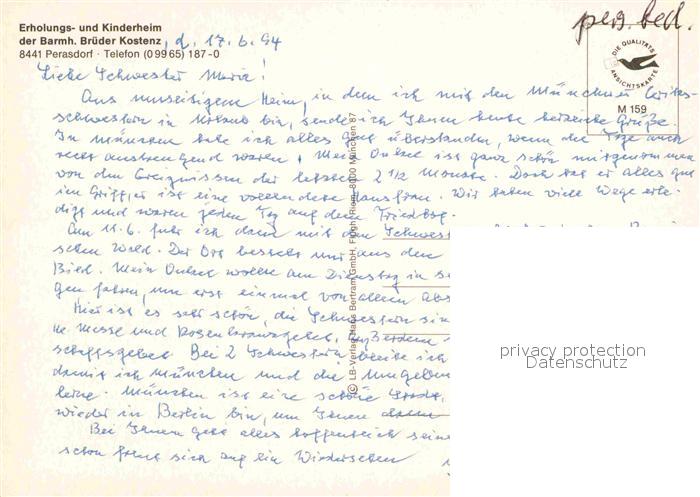 pers. bed.
Erholungs- und Kinderheim
der Barmh. Brüder Kostenz, d. 17.6.94
8441 Perasdorf · Telefon (0 99 65) 187-0
DIE QUALITÄTS ANSICHTSKARTE
M 159
Liebe Schwester Maria!
Aus unseitigem Heim, in dem ich mit den Münchner
schwestern in Urlaub bin, sende ich Ihnen heute herzliche Grüße.
In München habe ich alles gut überstanden, wenn die Tage auch
recht anstrengend waren. Mein Onkel ist ganz schön mitgenommen
von den Ereignissen der letzten 2 1/2 Monate. Doch hat er alles gut
im Griff, er ist eine vollendete Hausfrau. Wir haben viele Wege erle-
digt und waren jeden Tag auf dem Friedhof.
Am 11.6. fuhr ich dann mit den Schwest
schen Wald. Der Ort besteht nur aus dem
Bied. Mein Onkel wollte am Dienstag in
gen fahren, um erst einmal von allem Abs
Hier ist es sehr schön, die Schwestern sin
He. Messe und Rosenkranzgebet, außerdem
schaftsgebet. Bei 2 Schwestern bleibe ich
damit ich München und die Umgeben
lerne. München ist eine schöne Stadt,
wieder in Berlin bin, um Ihnen
Bei Ihnen geht alles hoffentlich seine
schon freut sich auf ein Wiedersehen
© LB-Verlag Hans Bertram GmbH, Flugh. Riem, 8000 München 87
privacy protection
Datenschutz